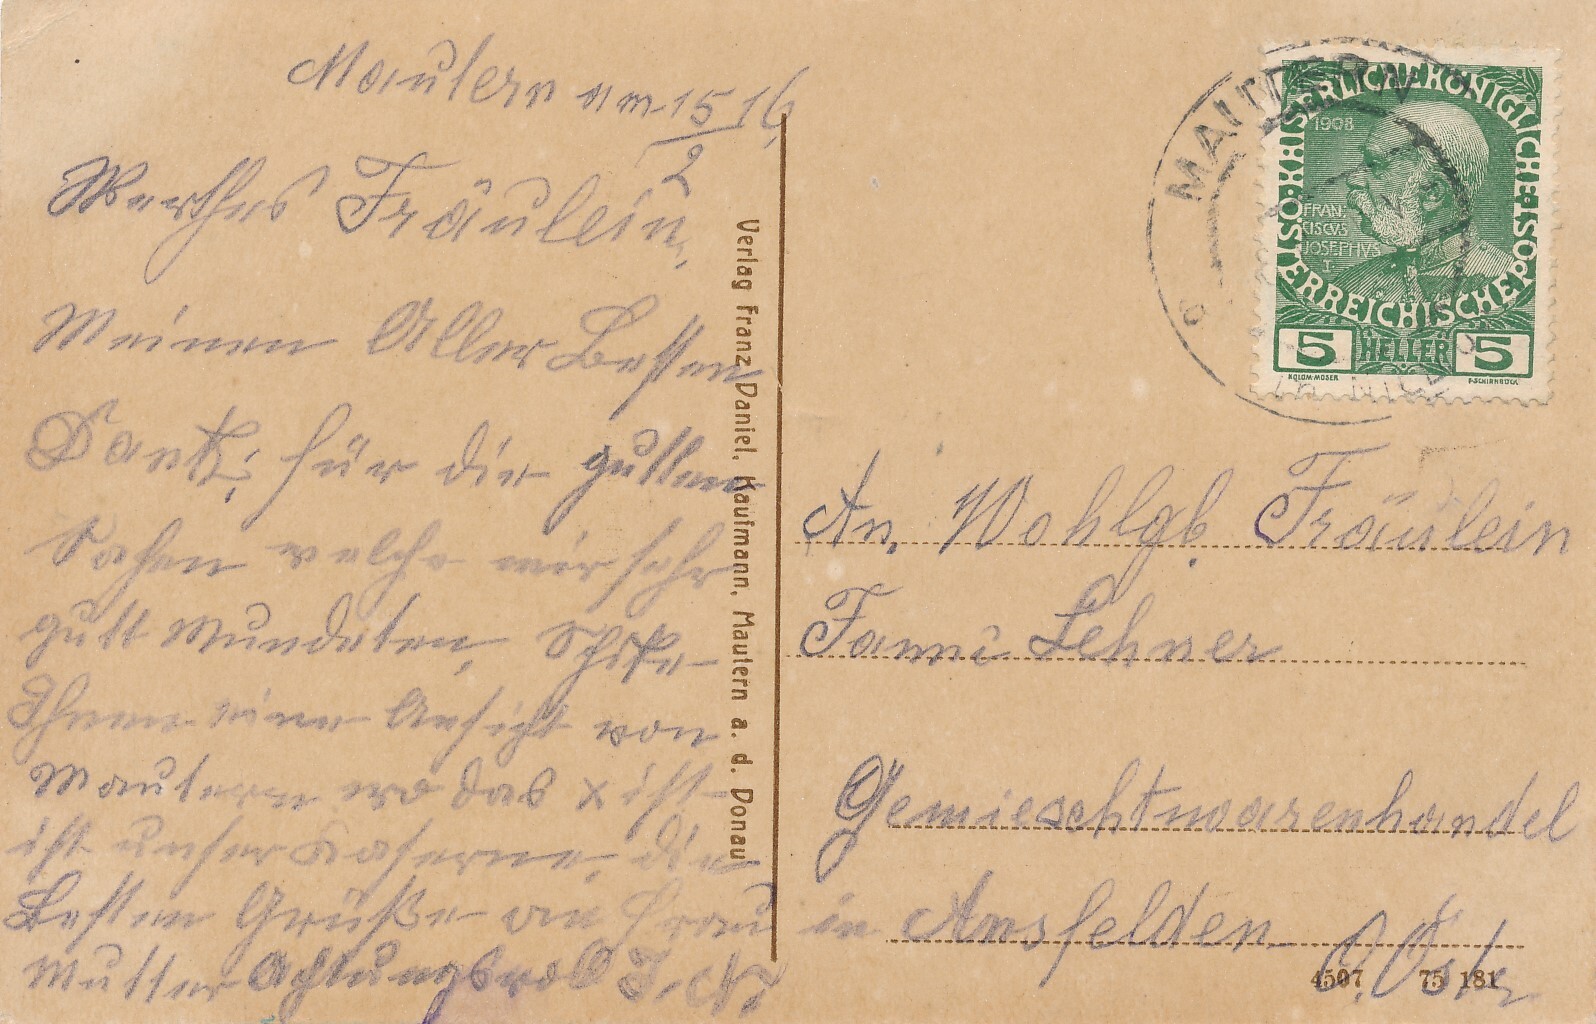 Mautern am 15/2 16
Werthes Fräulein,
Meinen Aller Besten
Dank, für die gutten
Sahen welche mir sehr
gutt Mundeten, Schike
Ihnen eine Ansicht von
Mautern wo das x ist
ist unser Kaserne, die
Besten Grüße an Frau
Mutter Achtungsvoll
Verlag Franz Daniel, Kaufmann, Mautern a. d. Donau
MAUTERN
KAISERLICHE KÖNIGLICHE
ÖSTERREICHISCHE POST
1908
FRAN
CISCVS
JOSEPHVS
I
5 HELLER 5
KOLOM·MOSER F.SCHIRNBÖCK
An, Wohlgb. Fräulein
Fanni Lehner
Gemieschtwarenhandel
in Ansfelden O. Östr
4507 75 181